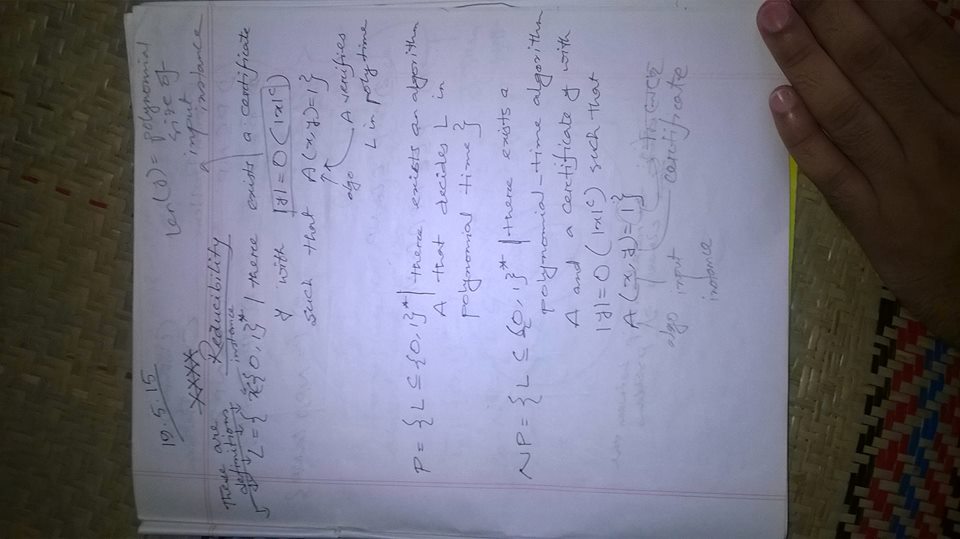 19.5.15
len(y) = polynomial
size of
input
instance
XXXX Reducibility
These are
definitions
instance
L = { x ∈ {0,1}* | there exists a certificate
y with |y| = O(|x|ᶜ)
such that A(x,y)=1}
algo
A verifies
L in polytime
P = { L ⊆ {0,1}* | there exists an algorithm
A that decides L in
polynomial time }
NP = { L ⊆ {0,1}* | there exists a
polynomial-time algorithm
A and a certificate y with
|y| = O(|x|ᶜ) such that
A(x,y)=1}
algo
input
instance
certificate